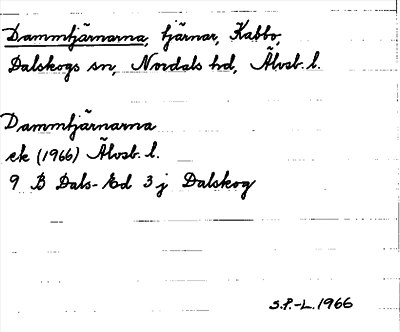 Dammtjärnarna, tjärnar, Kabbo,
Dalskogs sn, Nordals hd, Älvsb. l.
Dammtjärnarna
ek (1966) Älvsb. l.
9 B Dals-Ed 3 j Dalskog
S.P.-L. 1966